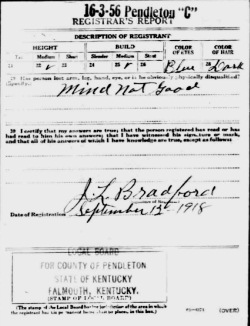 16-3-56 Pendleton "C"
REGISTRAR'S REPORT
DESCRIPTION OF REGISTRANT
HEIGHT BUILD COLOR OF EYES COLOR OF HAIR
Tall Medium Short Slender Medium Stout
21 22 ✓ 23 24 25 ✓ 26 27 Blue 28 Dark
29 Has person lost arm, leg, hand, eye, or is he obviously physically disqualified?
(Specify.)
Mind Not Good
30 I certify that my answers are true; that the person registered has read or has
had read to him his own answers; that I have witnessed his signature or mark,
and that all of his answers of which I have knowledge are true, except as follows:
J. L. Bradford
Date of Registration September 12th 1918
LOCAL BOARD
FOR COUNTY OF PENDLETON
STATE OF KENTUCKY
FALMOUTH, KENTUCKY.
(STAMP OF LOCAL BOARD)
(The stamp of the Local Board having jurisdiction of the area in which
the registrant has his permanent home shall be placed in this box.)
(OVER)